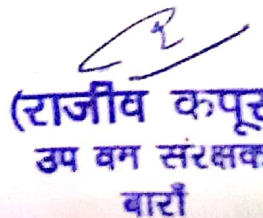 (राजीव कपूर
उप वन संरक्षक
बाराँ